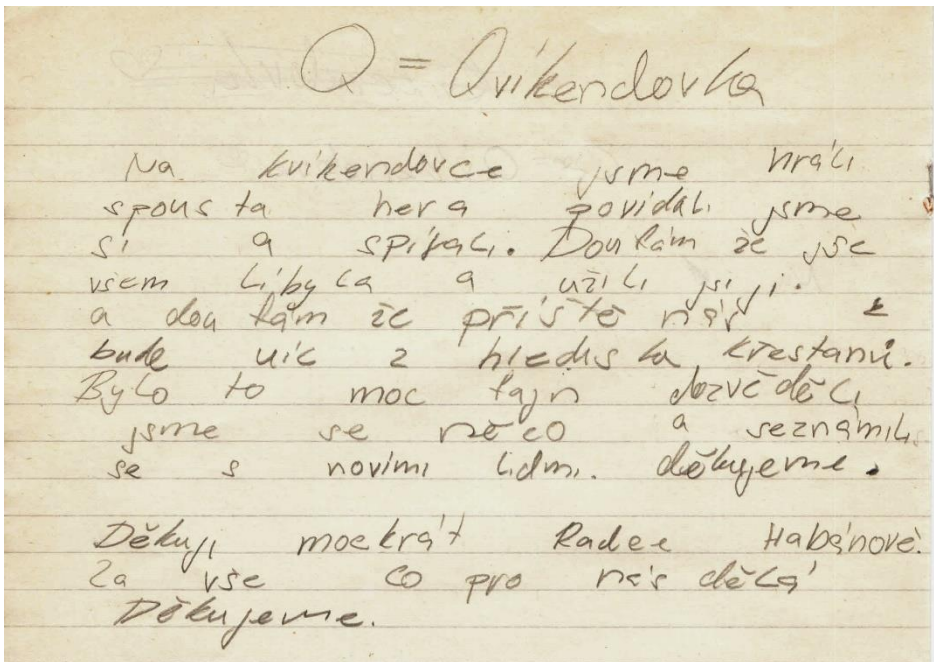 Q = Qvíkendovka
Na kvikendovce jsme hráli
spousta her a povidali jsme
si a spívali. Doufám že jse
všem líbyla a užili jsi ji.
a doufám že příště nás
bude víc z hlediska křestanů.
Bylo to moc fajn dozvěděli
jsme se něco a seznámili
se s novimi lidmi. děkujeme.
Děkuji mockrát Radce Habánové.
Za vše co pro nás dělá
Děkujeme.